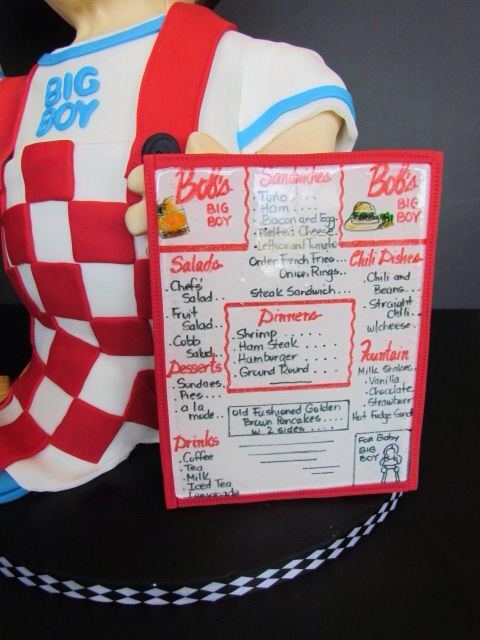 BIG
BOY
Bob's
BIG
BOY
Sandwiches
Tuna....
Ham....
Bacon and Egg.
Melted Cheese.
Lettuce and Tomato
Bob's
BIG
BOY
Order French Fries...
Onion Rings...
Steak Sandwich....
Salads
Chefs
Salad..
Fruit
Salad..
Cobb
Salad..
Desserts
Sundaes.
Pies...
a la
mode..
Drinks
Coffee
Tea
Milk
Iced Tea
Lemonade
Dinners
Shrimp......
Ham Steak....
Hamburger....
Ground Round....
Old Fashioned Golden
Brown Pancakes....
w 2 sides....
Chili Dishes
Chili and
Beans..
Straight
Chili..
w/cheese.
Fountain
Milk Shakes.
Vanilla.
Chocolate.
Strawberry
Hot Fudge Sund
For Baby
BIG
BOY